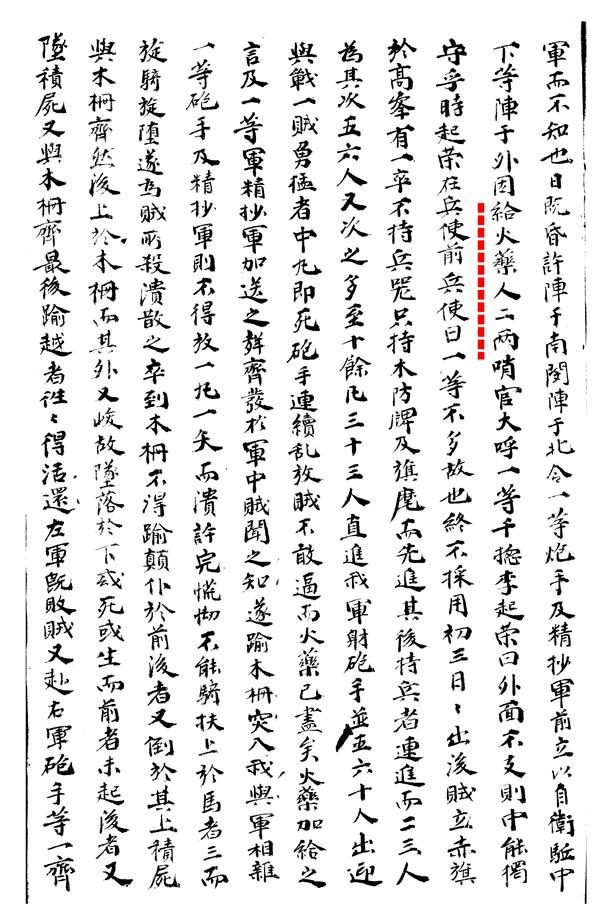 軍而不知也日旣昏許陣于南閔陣于北令一等炮手及精抄軍前立以自衛駈中
下等陣于外因給火藥人二兩哨官大呼一等千摠李起荣曰外面不支則中能獨
守乎時起荣在兵使前兵使曰一等不多故也終不採用初三日〻出後賊立赤旗
於高峯有一卒不持兵器只持木防牌及旗麾而先進其後持兵者連進而二三人
為其次五六人又次之多至十餘凡三十三人直進我軍射砲手並五六十人出迎
與戰一賊勇猛者中丸即死砲手連續乱放賊不敢逼而火藥已盡矣火藥加給之
言及一等軍精抄軍加送之辭齊發於軍中賊聞之知遂踰木柵突入我與軍相雜
一等砲手及精抄軍則不得放一丸一矢而潰許完慌怯不能騎扶上於馬者三而
旋騎旋墮遂為賊所殺潰散之卒到木柵不得踰顛仆於前後者又倒於其上積屍
與木柵齊然後上於木柵而其外又峻故墜落於下或死或生而前者未起後者又
墜積屍又與木柵齊最後踰越者徃〻得活還左軍旣敗賊又赴右軍砲手等一齊